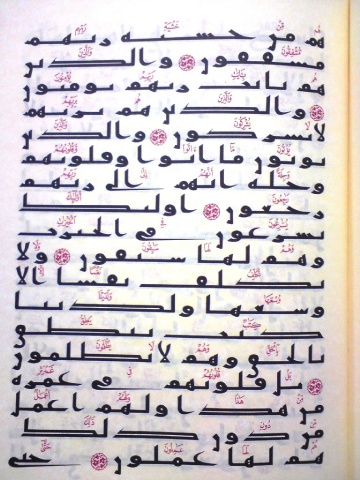 هم من خشية ربهم
مشفقون والذين
هم بايت ربهم يومنون
والذين هم بربهم
لا يشركون والذين
يوتون ما اتوا وقلوبهم
وجلة انهم الى ربهم
رجعون اوليك
يسرعون في الخيرت
وهم لها سبقون ولا
نكلف نفسا الا
وسعها ولدينا
كتب ينطق
بالحق وهم لا يظلمون
بل قلوبهم في غمرة
من هذا ولهم اعمل
من دون ذلك
هم لها عملون حتى